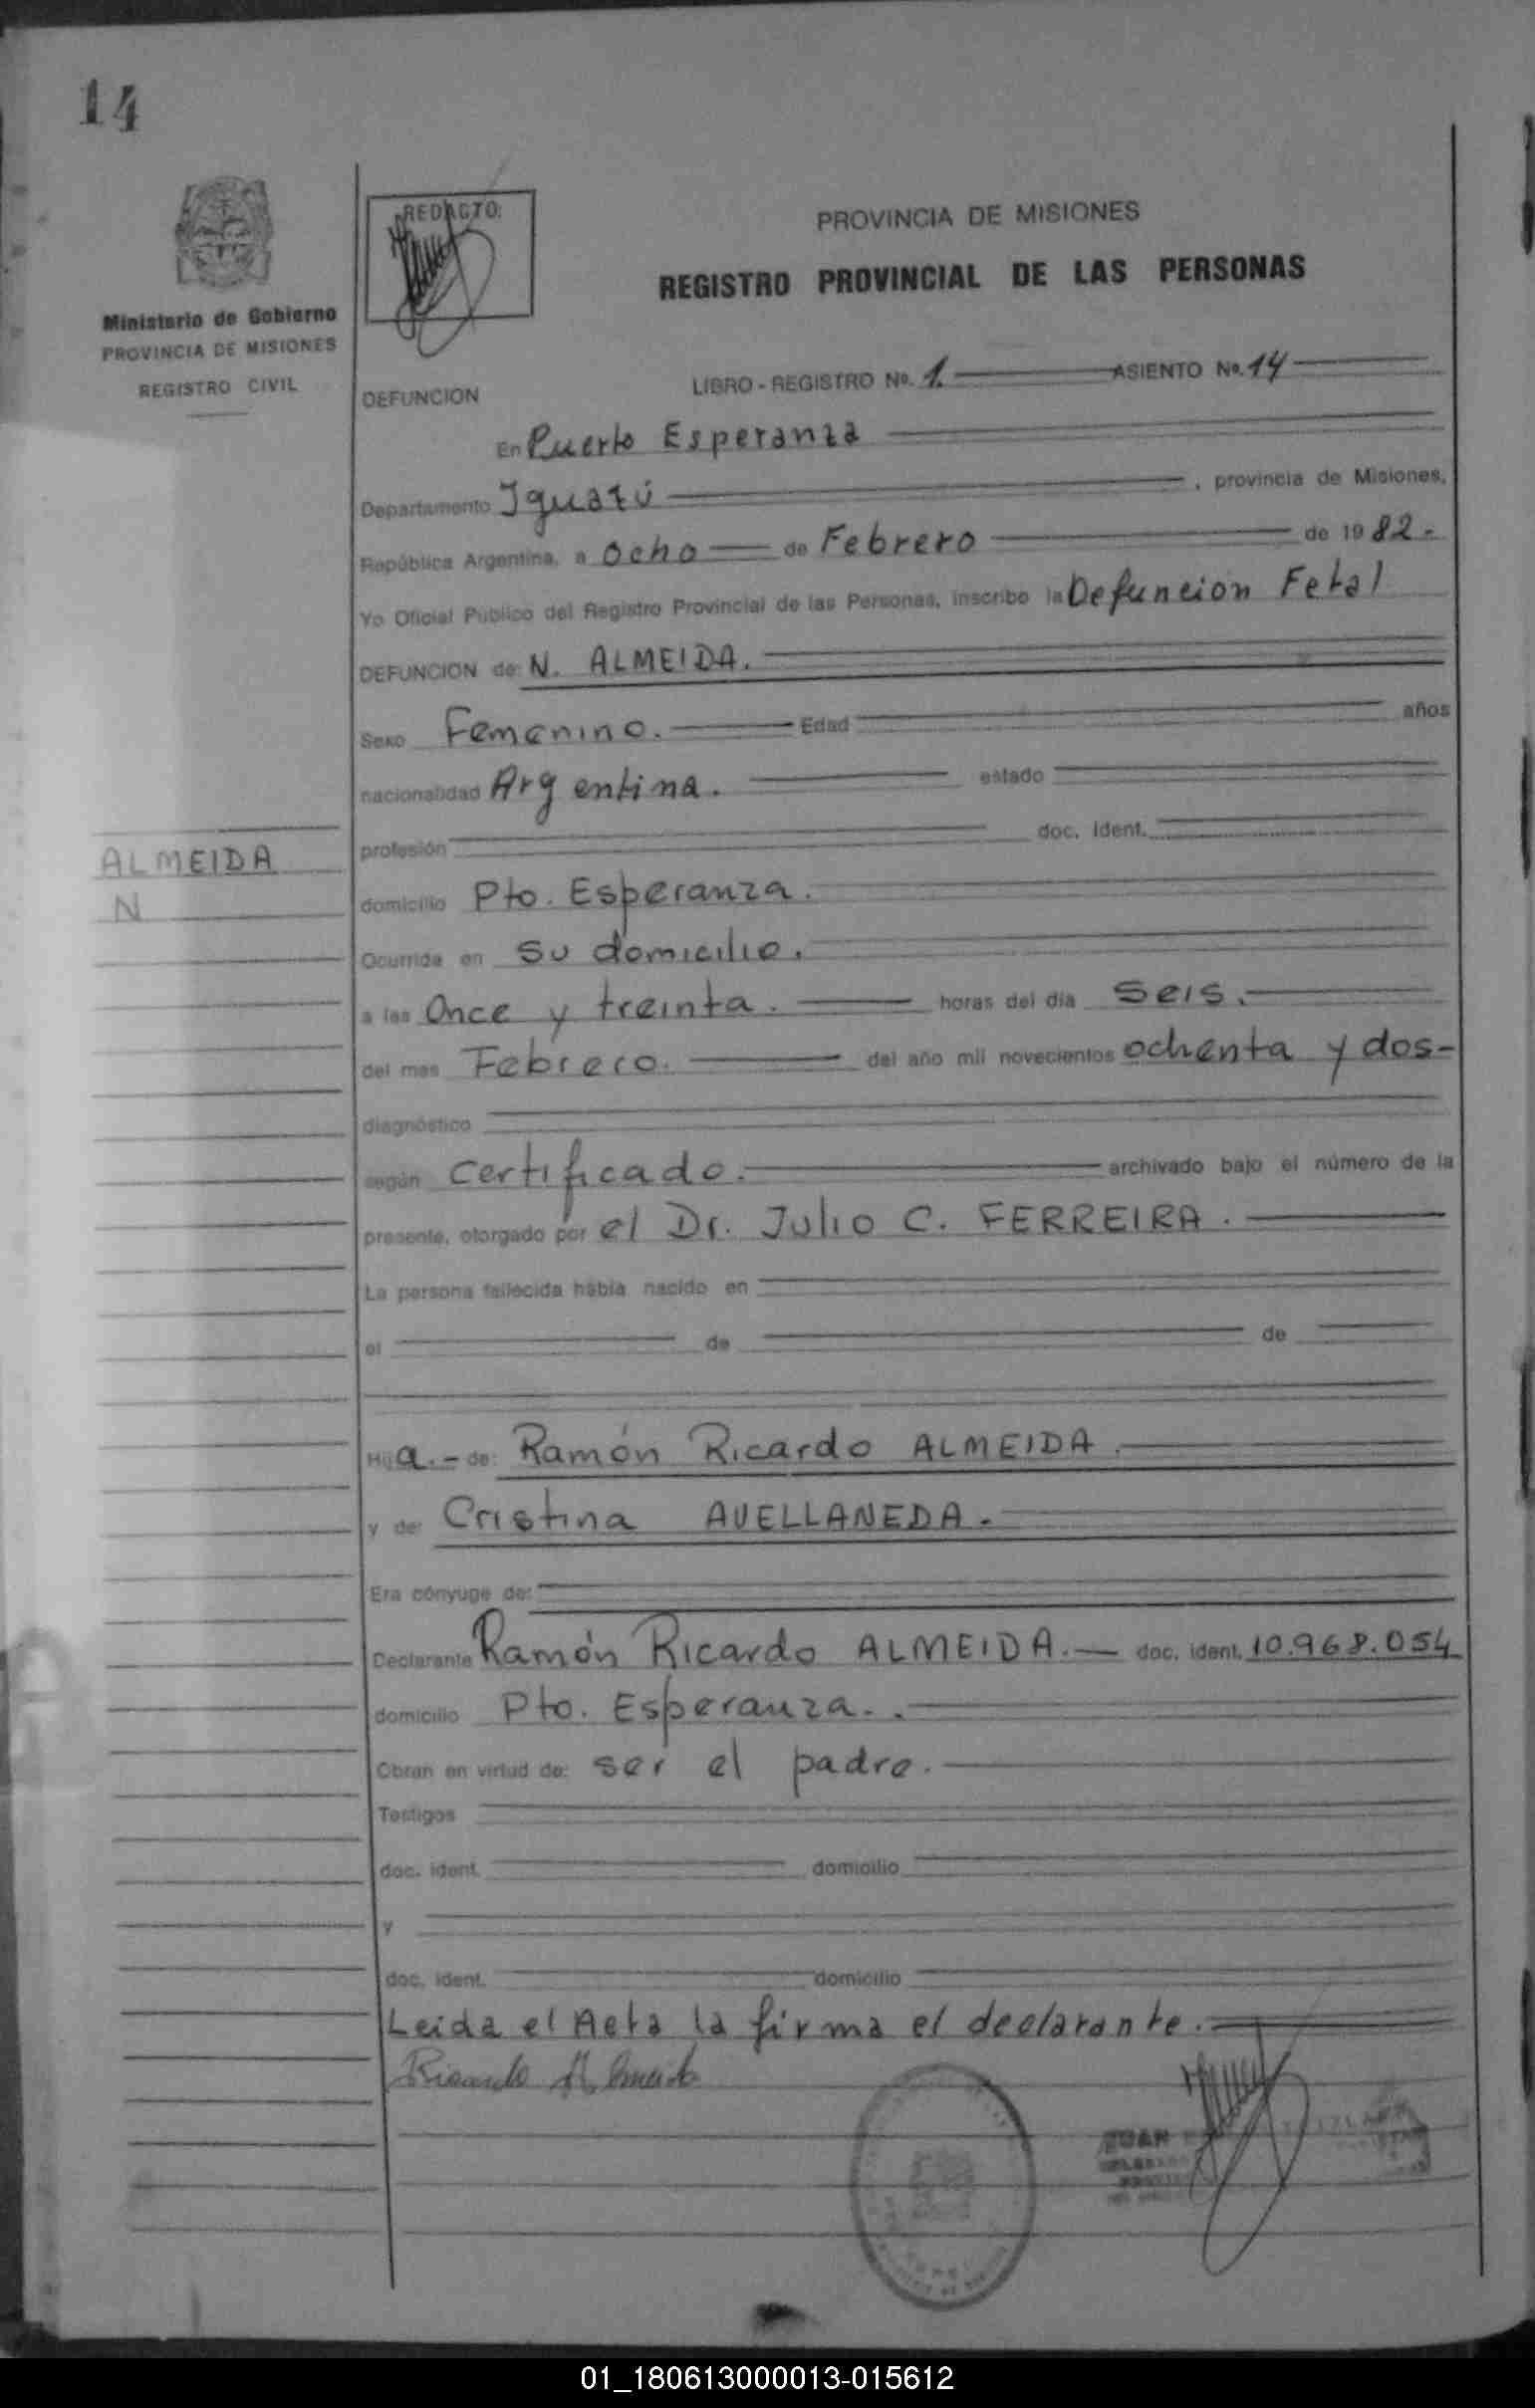 14
Ministerio de Gobierno
PROVINCIA DE MISIONES
REGISTRO CIVIL
REDACTO:
PROVINCIA DE MISIONES
REGISTRO PROVINCIAL DE LAS PERSONAS
DEFUNCION LIBRO - REGISTRO No. 1. ASIENTO No. 14
En Puerto Esperanza
Departamento Iguazú, provincia de Misiones,
República Argentina, a ocho de Febrero de 1982.-
Yo Oficial Público del Registro Provincial de las Personas, inscribo la Defuncion Fetal
DEFUNCION de: N. ALMEIDA.
Sexo Femenino. Edad años
nacionalidad Argentina. estado
profesión doc. ident.
ALMEIDA
N
domicilio Pto. Esperanza.
Ocurrida en su domicilio.
a las Once y treinta. horas del día seis.
del mes Febrero. del año mil novecientos ochenta y dos-
diagnóstico
según certificado. archivado bajo el número de la
presente, otorgado por el Dr. Julio C. FERREIRA.
La persona fallecida había nacido en
el de de
Hija.- de: Ramón Ricardo ALMEIDA.
y de: Cristina AVELLANEDA.
Era cónyuge de:
Declarante Ramón Ricardo ALMEIDA.- doc. ident. 10.968.054
domicilio Pto. Esperanza..
Obran en virtud de: ser el padre.
Testigos
doc. ident. domicilio
y
doc. ident. domicilio
Leida el Acta la firma el declarante.
Ricardo Almeida
JUAN
01_180613000013-015612